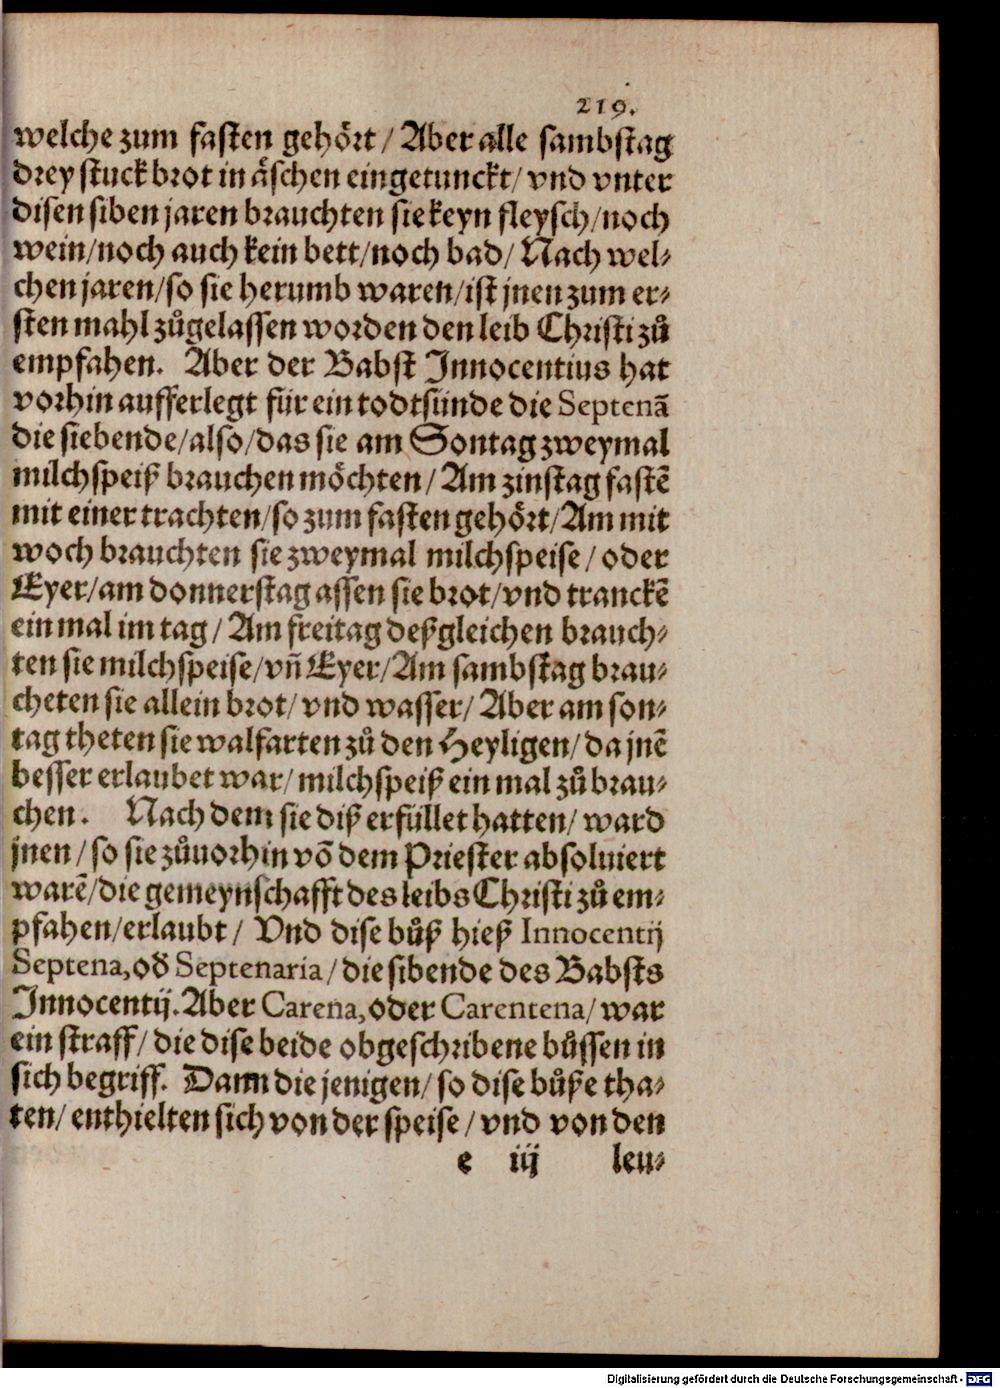 219.
welche zum fasten gehört / Aber alle sambstag
drey stuck brot in äschen eingetunckt / vnd vnter
disen siben jaren brauchten sie keyn fleysch / noch
wein / noch auch kein bett / noch bad / Nach wel⸗
chen jaren / so sie herumb waren / ist jnen zum er⸗
sten mahl zůgelassen worden den leib Christi zů
empfahen. Aber der Babst Innocentius hat
vorhin aufferlegt für ein todtsünde die Septenā
die siebende / also / das sie am Sontag zweymal
milchspeiß brauchen möchten / Am zinstag fastē
mit einer trachten / so zum fasten gehört / Am mit
woch brauchten sie zweymal milchspeise / oder
Eyer / am donnerstag assen sie brot / vnd tranckē
ein mal im tag / Am freitag deßgleichen brauch⸗
ten sie milchspeise / vñ Eyer / Am sambstag brau⸗
cheten sie allein brot / vnd wasser / Aber am son⸗
tag theten sie walfarten zů den Heyligen / da jnē
besser erlaubet war / milchspeiß ein mal zů brau⸗
chen. Nach dem sie diß erfüllet hatten / ward
jnen / so sie zůuorhin võ dem Priester absoluiert
warē / die gemeynschafft des leibs Christi zů em⸗
pfahen / erlaubt / Vnd dise bůß hieß Innocentij
Septena, oď Septenaria / die sibende des Babsts
Innocentij. Aber Carena, oder Carentena / war
ein straff / die dise beide obgeschribene bůssen in
sich begriff. Dann die jenigen / so dise bůße tha⸗
ten / enthielten sich von der speise / vnd von den
e iij leu⸗
Digitalisierung gefördert durch die Deutsche Forschungsgemeinschaft - DFG